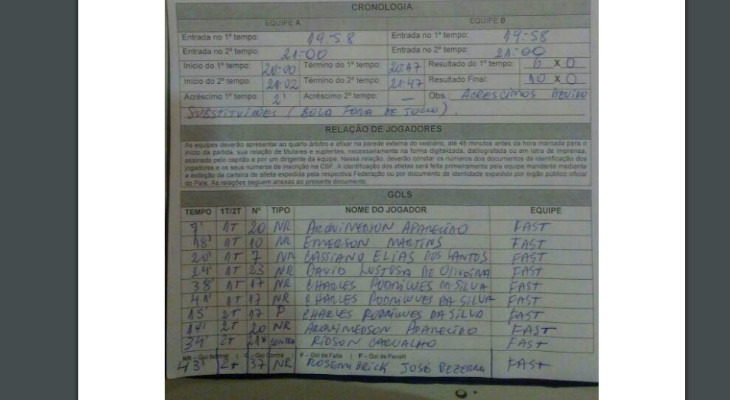 CRONOLOGIA
EQUIPE A EQUIPE B
Entrada no 1º tempo: 19:58 Entrada no 1º tempo: 19:58
Entrada no 2º tempo: 21:00 Entrada no 2º tempo: 21:00
Início do 1º tempo: Término do 1º tempo: 20:47 Resultado do 1º tempo: 6 X 0
Início do 2º tempo: 21:02 Término do 2º tempo: 21:47 Resultado Final: 10 X 0
Acréscimo 1º tempo: 2' Acréscimo 2º tempo: — Obs.: ACRÉSCIMOS DEVIDO
SUBSTITUIÇÕES (BOLA FORA DE JOGO).
RELAÇÃO DE JOGADORES
As equipes deverão apresentar ao quarto árbitro e afixar na parede externa do vestiário, até 45 minutos antes da hora marcada para o
início da partida, sua relação de titulares e suplentes, necessariamente na forma digitalizada, datilografada ou em letra de imprensa,
assinada pelo capitão e por um dirigente da equipe. Nessa relação, deverão constar os números dos documentos de identificação dos
jogadores e os seus números de inscrição na CBF. A identificação dos atletas será feita primeiramente pela equipe mandante mediante
a exibição da carteira de atleta expedida pela respectiva Federação ou por documento de identidade expedido por órgão público oficial
do País. As relações seguem anexas ao presente documento.
GOLS
TEMPO 1T/2T Nº TIPO NOME DO JOGADOR EQUIPE
9' 1T 20 NR ARQUIMEDSON APARECIDO FAST
18' 1T 10 NR EMERSON MARTINS FAST
20' 1T 7 NR CASSIANO ELIAS DOS SANTOS FAST
24' 1T 23 NR DAVID LUSTOSA DE OLIVEIRA FAST
38' 1T 17 NR CHARLES RODRIGUES DA SILVA FAST
41' 1T 17 NR CHARLES RODRIGUES DA SILVA FAST
15' 2T 17 P CHARLES RODRIGUES DA SILVA FAST
2T 20 NR ARQUIMEDSON APARECIDO FAST
34' 2T CONTRA RIDSON CARVALHO FAST
NR - Gol Normal | C - Gol Contra | F - Gol de Falta | P - Gol de Pênalti
43' 2T 37 NR ROSEMBRICK JOSÉ BEZERRA FAST